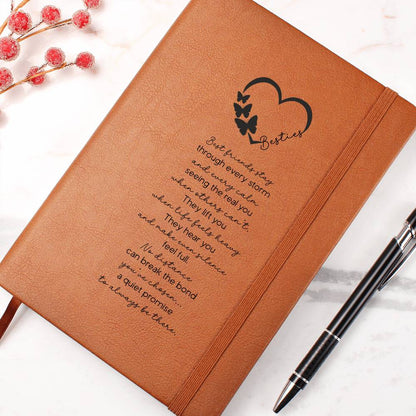 Besties
Best friends stay
through every storm
and every calm
seeing the real you
when others can't.
They lift you
when life feels heavy
They hear you
and make even silence
feel full.
No distance
can break the bond
you've chosen...
a quiet promise
to always be there.